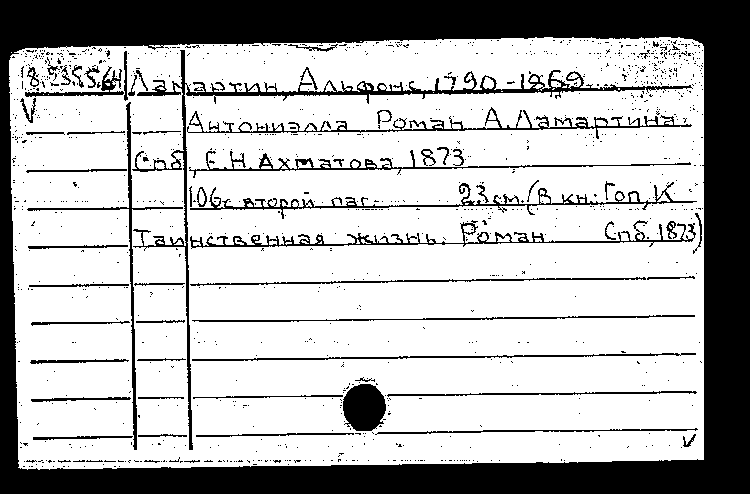 8.93.55.64 Ламартин, Альфонс, 1790-1869
Антониэлла Роман А.Ламартина.
Спб, Е.Н.Ахматова, 1873
106с второй паг. 23 см. (В кн: Гоп, К
Таинственная жизнь. Роман Спб, 1873)